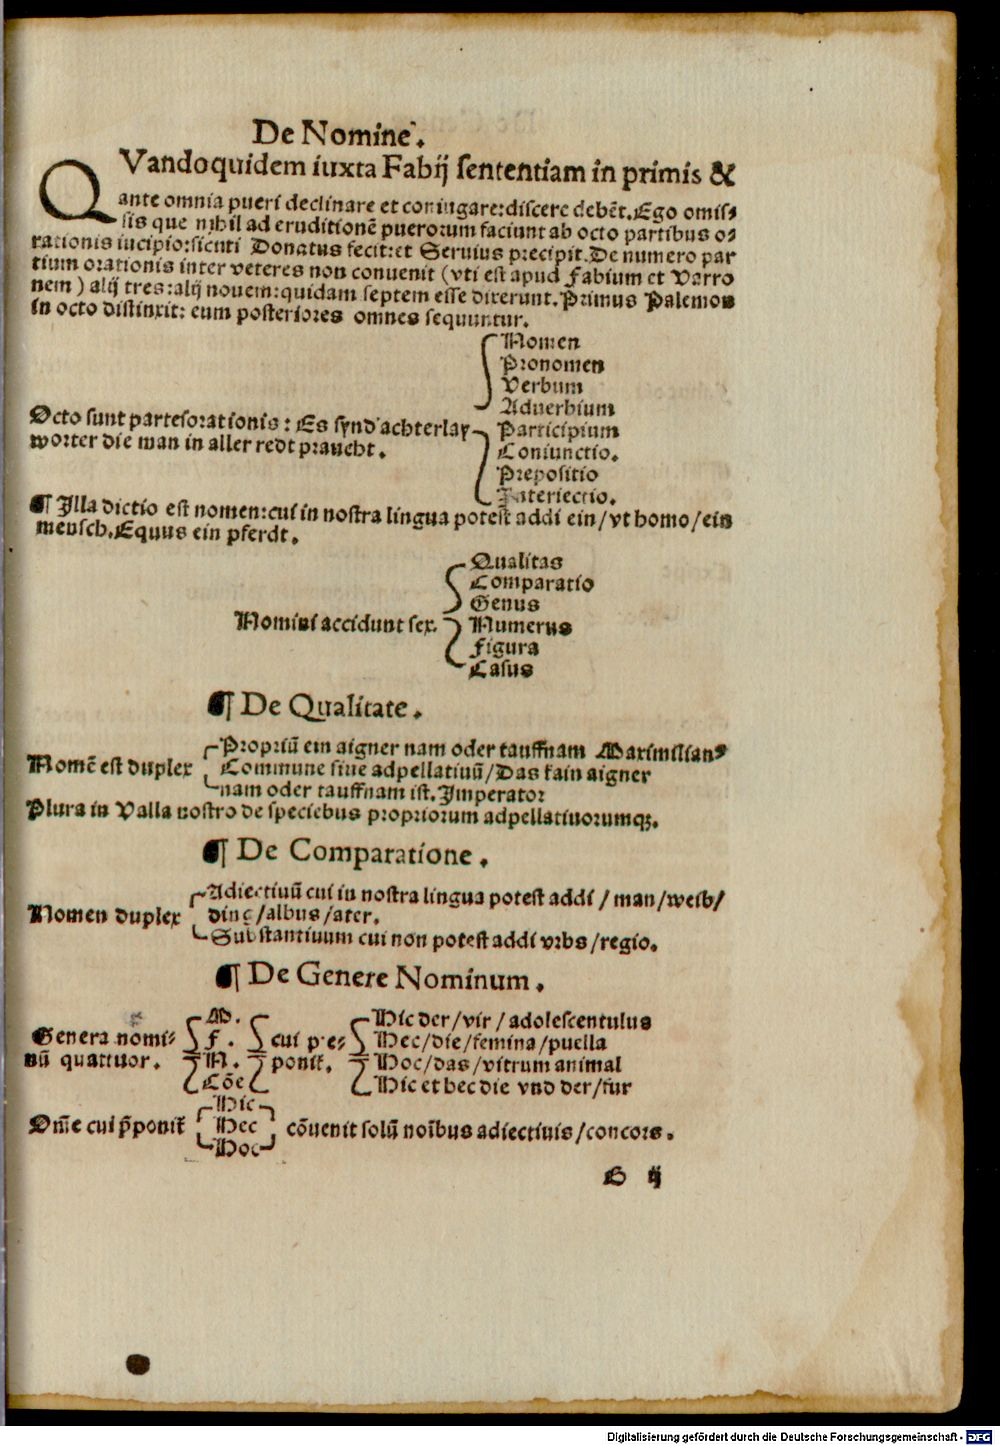 De Nomine.
QVandoquidem iuxta Fabij sententiam in primis &
ante omnia pueri declinare et coniugare:discere debēt.Ego omis⸗
sis que nihil ad eruditionē puerorum faciunt ab octo partibus o⸗
rationis incipio:sicuti Donatus fecit:et Seruius precipit.De numero par
tium orationis inter veteres non conuenit (vti est apud Fabium et Varro
nem) alij tres:alij nouem:quidam septem esse dixerunt.Primus Palemon
in octo distinxit: eum posteriores omnes sequuntur.
Nomen
Pronomen
Verbum
Aduerbium
Octo sunt partesorationis: Es synd achterlay
worter die man in aller redt praucht.
Participium
Coniunctio.
Prepositio
Interiectio.
¶ Illa dictio est nomen:cui in nostra lingua potest addi ein/vt homo/ein
mensch.Equus ein pferdt.
Qualitas
Comparatio
Genus
Nomini accidunt sex.
Numerus
Figura
Casus
¶ De Qualitate.
Nomē est duplex
Propriū ein aigner nam oder tauffnam Maximilianꝰ
Commune siue adpellatiuū/Das kain aigner
nam oder tauffnam ist.Imperator
Plura in Valla nostro de speciebus propriorum adpellatiuorumqꝫ.
¶ De Comparatione.
Nomen duplex
Adiectiuū cui in nostra lingua potest addi / man/weib/
ding/albus/ater.
Substantiuum cui non potest addi vrbs/regio.
¶ De Genere Nominum.
Genera nomi⸗
nū quattuor.
M.
F.
N.
Cōe
cui pre⸗
ponit̄.
Hic der/vir/adolescentulus
Hec/die/femina/puella
Hoc/das/vitrum animal
Hic et hec die vnd der/fur
Om̄e cui p̄ponit̄
Hic
Hec
Hoc
cōuenit solū noībus adiectiuis/concors.
B ij
Digitalisierung gefördert durch die Deutsche Forschungsgemeinschaft - DFG